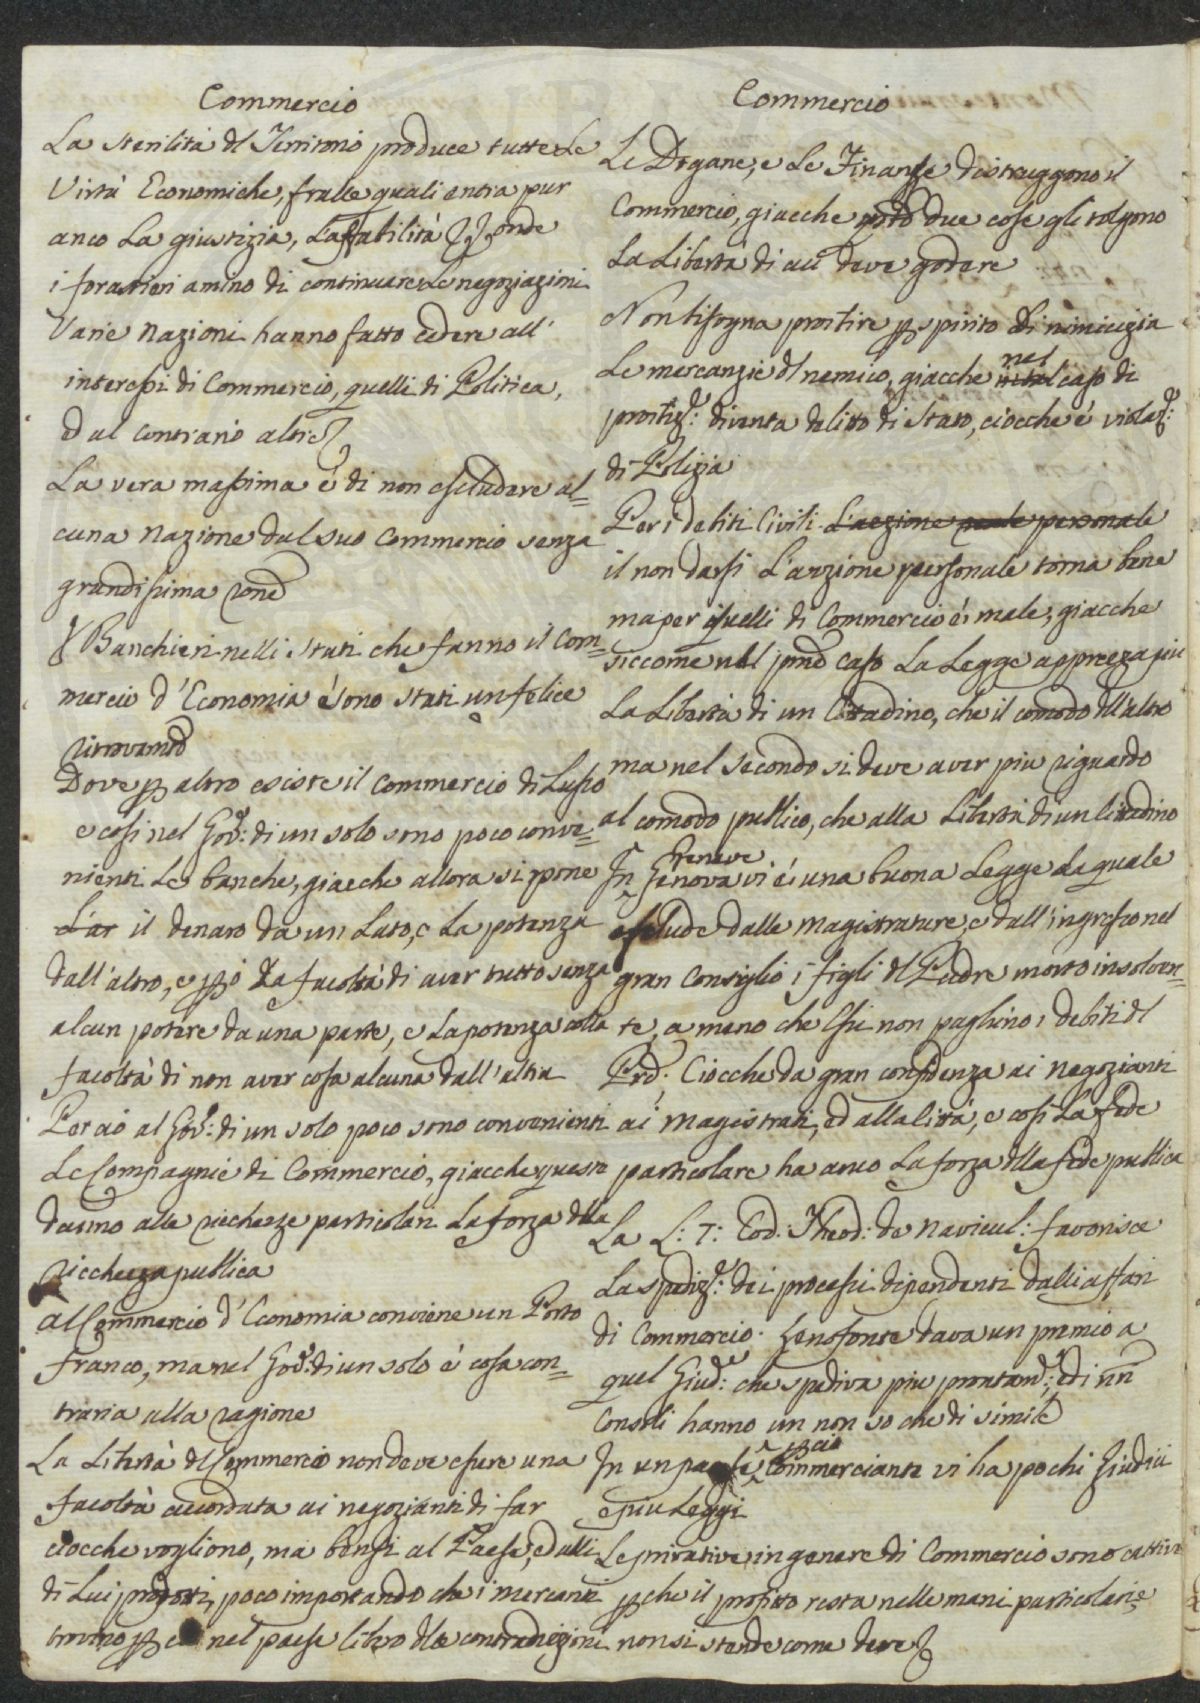 Commercio
La sterilità dl Territorio produce tutte Le
Virtù Economiche, fralle quali entra pur
anco La giustizia, L'affabilità onde
i forastieri amino di continuare Le negoziazioni
Varie Nazioni hanno fatto cedere all'
interessi di Commercio, quelli di Politica,
ed al contrario altre
La vera massima é di non escludere al=
cuna Nazione dal suo Commercio senza
grandissima rone
I Banchieri nelli stati che fanno il Com=
mercio d'Economia é sono stati un felice
ritrovamto
Dove altro esiste il Commercio di Lusso
e cosi nel Gove: di un solo sono poco conve=
nienti Le banche, giacche allora si pone
L'ar il denaro da un Lato, e La potenza
dall'altro, e La facoltà di aver tutto senza
alcun potere da una parte, e La potenza colla
facoltà di non aver cosa alcuna dall'altra
Per ciò al Gove: di un solo poco sono convenienti
Le Compagnie di Commercio, giacche queste
danno alle ricchezze particolari La forza dlla
ricchezza publica
al Commercio d'Economia conviene un Porto
franco, ma nel Gove: di un solo é cosa con=
traria alla ragione
La Libertà dl Commercio non deve essere una
facoltà accordata ai negozianti di far
ciocche vogliono, ma bensi al Paese, e dalli
di Lui prodotti, poco importando che i mercanti
trovino nel paese libero dlle contradizioni
Commercio
Le Dogane, e Le Finanze distruggono il
Commercio, giacche due cose gli tolgono
La Libertà di cui deve godere
Non bisogna proibire spirito di inimicizia
Le mercanzie dl nemico, giacche nel caso di
proibize: diventa delitto di Stato, ciocche é violaze:
di Polizia
Per i debiti Civili L'aezione reale personale
il non darsi L'azzione personale torna bene
ma per quelli di Commercio é male, giacche
siccome nel pmo caso La Legge apprezza piu
La Libertà di un Cittadino, che il comodo dll'altro
ma nel secondo si deve aver piu riguardo
al comodo publico, che alla Libertà di un Cittadino
In Genova Geneve vi é una buona Legge La quale
esclude dalle Magistrature, e dall'ingresso nel
gran Consiglio i figli dl Padre morto insolven=
te, a meno che Essi non paghino i debiti dl
Prd. Ciocche da gran confidenza ai Negozianti
ai Magistrati, ed alla Città, e cosi La fede
particolare ha anco La forza dlla fede publica
La L: 7: Cod: Theod: de Navicul: favorisce
La spedize: dei processi dipendenti dalli affari
di Commercio. Zenofonte dava un premio a
quel Giude: che spediva piu prontame:, ed i nri
Consoli hanno un non so che di simile
In un paese Commerciante vi ha pochi Giudici
e piu Leggi
Le privative in genere di Commercio sono cattive
che il profitto resta nelle mani particolari, e
non si stende come deve